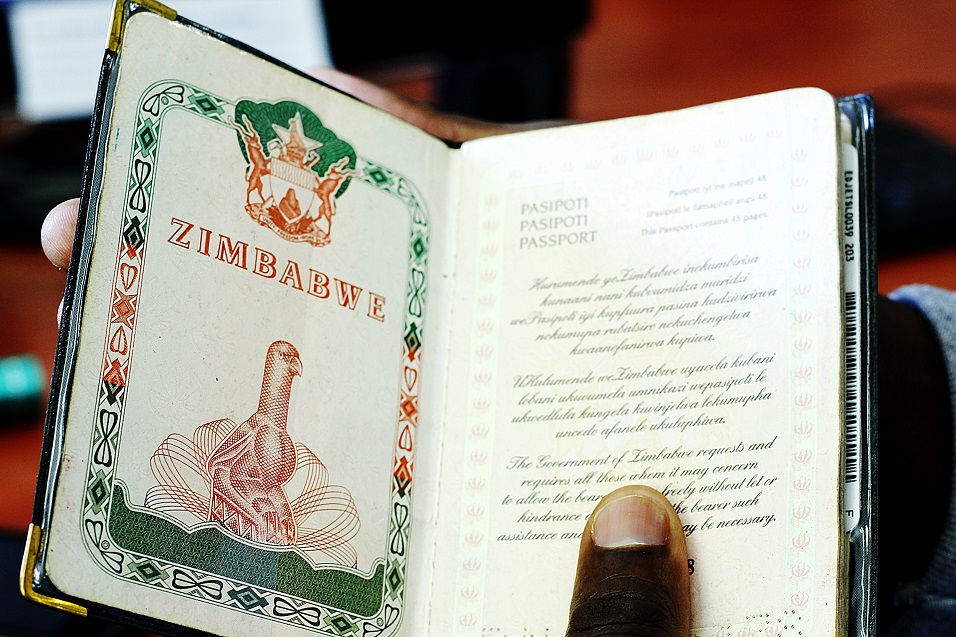 ZIMBABWE
PASIPOTI
PASIPOTI
PASSPORT
Pasipoti iyi ine mapeji 48.
IPasipoti le ilamapheji angu 48.
This Passport contains 48 pages.
Hurumende yeZimbabwe inokumbirisa
kunaani nani kubvumidza muridzi
wePasipoti iyi kupfuura pasina kudzivirirwa
nokumupa rubatsiro nokuchengetwa
kwaanofanirwa kupiwa.
UHulumende weZimbabwe uyacela kubani
lobani ukuvumela umnikazi wepasipoti le
ukwedlula kungela kuvinjelwa lokumupha
uncedo afanele ukutuphiwa.
The Government of Zimbabwe requests and
requires all those whom it may concern
to allow the bearer freely without let or
hindrance the bearer such
assistance and may be necessary.